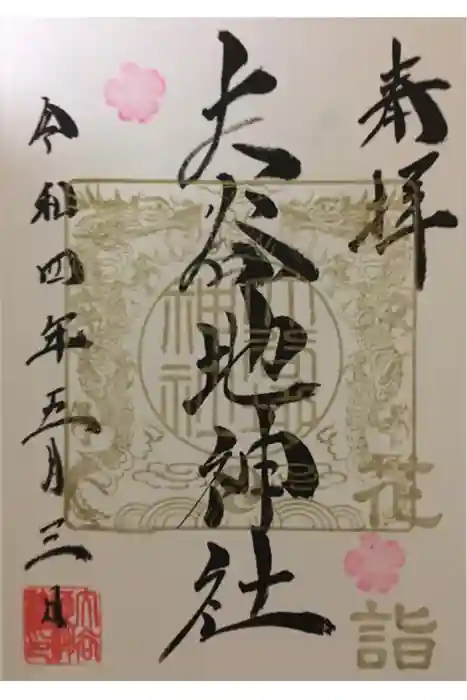 奉拝
花詣
大谷地神社
令和四年五月三日